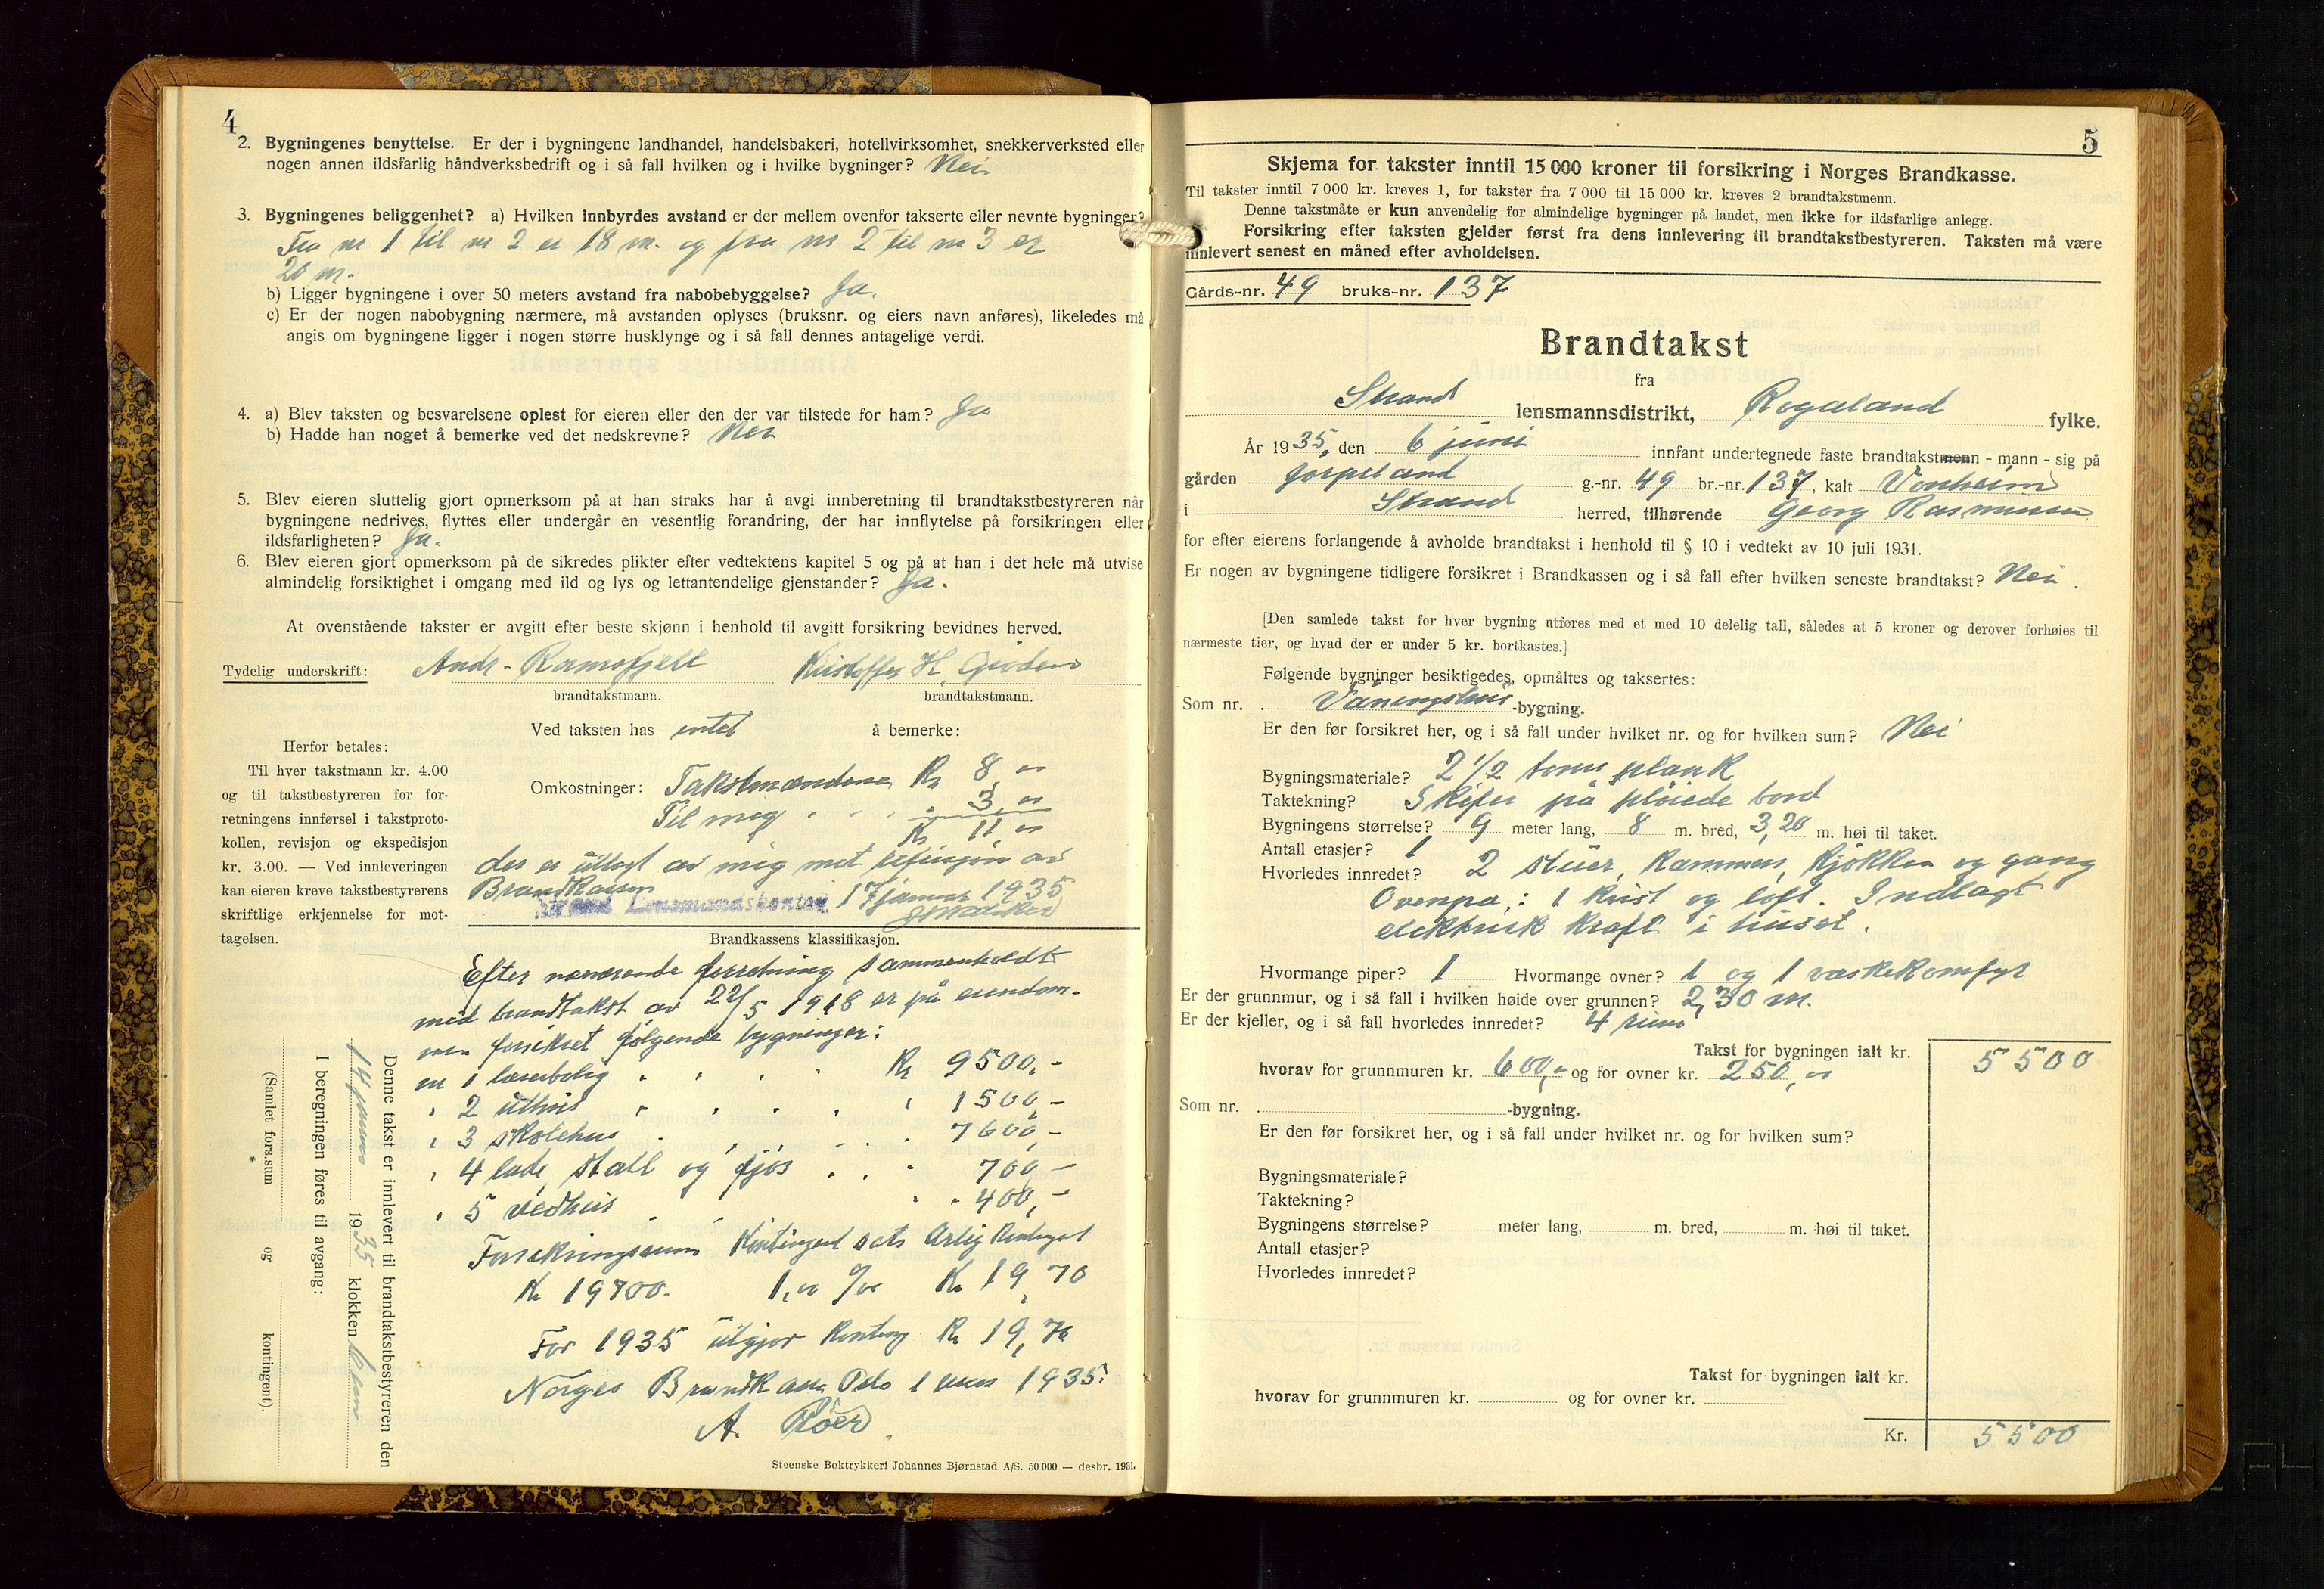 4
2. Bygningenes benyttelse. Er der i bygningene landhandel, handelsbakeri, hotellvirksomhet, snekkerverksted eller
nogen annen ildsfarlig håndverksbedrift og i så fall hvilken og i hvilke bygninger? Nei.
3. Bygningenes beliggenhet? a) Hvilken innbyrdes avstand er der mellem ovenfor takserte eller nevnte bygninger?
Fra nr 1 til nr 2 er 18 m. og fra nr 2 til nr 3 er
20 m.
b) Ligger bygningene i over 50 meters avstand fra nabobebyggelse? Ja.
c) Er der nogen nabobygning nærmere, må avstanden oplyses (bruksnr. og eiers navn anføres), likeledes må
angis om bygningene ligger i nogen større husklynge og i så fall dennes antagelige verdi.
4. a) Blev taksten og besvarelsene oplest for eieren eller den der var tilstede for ham? Ja
b) Hadde han noget å bemerke ved det nedskrevne? Nei
5. Blev eieren sluttelig gjort opmerksom på at han straks har å avgi innberetning til brandtakstbestyreren når
bygningene nedrives, flyttes eller undergår en vesentlig forandring, der har innflytelse på forsikringen eller
ildsfarligheten? Ja.
6. Blev eieren gjort opmerksom på de sikredes plikter efter vedtektens kapitel 5 og på at han i det hele må utvise
almindelig forsiktighet i omgang med ild og lys og lettantendelige gjenstander? Ja.
At ovenstående takster er avgitt efter beste skjønn i henhold til avgitt forsikring bevidnes herved.
Tydelig underskrift: Andr. Ramsfjell Kristoffer H.
brandtakstmann. brandtakstmann.
Ved taksten has intet å bemerke:
Herfor betales:
Til hver takstmann kr. 4.00
og til takstbestyreren for for-
retningens innførsel i takstproto-
kollen, revisjon og ekspedisjon
kr. 3.00. — Ved innleveringen
kan eieren kreve takstbestyrerens
skriftlige erkjennelse for mot-
tagelsen.
Omkostninger: Takstmændene Kr 8,00
Til mig 3,00
Kr 11,00
der er utlagt av mig mot refusjon av
Brandkassen
Strand Lensmandskontor 17 januar 1935
Brandkassens klassifikasjon.
Efter nærværende forretning sammenholdt
med brandtakst av 22/5 1918 er på eiendom-
men forsikret følgende bygninger:
nr 1 lærerbolig Kr 9500,-
" 2 uthus " 1500,-
" 3 skolehus " 7600,-
" 4 lade, stall og fjøs " 700,-
" 5 vedhus " 400,-
Forsikringssum Kontingent sats Årlig Kontingent
Kr 19700.- 1,00 0/00 Kr 19,70
For 1935 utgjør Konting Kr 19,70
Norges Brandkasse Oslo 1 mars 1935.
A. Röer
Denne takst er innlevert til brandtakstbestyreren den
14 januar 1935 klokken
I beregningen føres til avgang:
(Samlet fors.sum og kontingent).
Steenske Boktrykkeri Johannes Bjørnstad A/S. 50 000 — desbr. 1931.
5
Skjema for takster inntil 15 000 kroner til forsikring i Norges Brandkasse.
Til takster inntil 7 000 kr. kreves 1, for takster fra 7 000 til 15 000 kr. kreves 2 brandtakstmenn.
Denne takstmåte er kun anvendelig for almindelige bygninger på landet, men ikke for ildsfarlige anlegg.
Forsikring efter taksten gjelder først fra dens innlevering til brandtakstbestyreren. Taksten må være
innlevert senest en måned efter avholdelsen.
Gårds-nr. 49 bruks-nr. 137
Brandtakst
fra
Strand lensmannsdistrikt, Rogaland fylke.
År 1935, den 6 juni innfant undertegnede faste brandtakstmenn - mann - sig på
gården Jørpeland g.-nr. 49 br.-nr. 137, kalt Vonheim
i Strand herred, tilhørende Georg Rasmussen
for efter eierens forlangende å avholde brandtakst i henhold til § 10 i vedtekt av 10 juli 1931.
Er nogen av bygningene tidligere forsikret i Brandkassen og i så fall efter hvilken seneste brandtakst? Nei.
[Den samlede takst for hver bygning utføres med et med 10 delelig tall, således at 5 kroner og derover forhøies til
nærmeste tier, og hvad der er under 5 kr. bortkastes.]
Følgende bygninger besiktigedes, opmåltes og taksertes:
Som nr. Våningshus -bygning.
Er den før forsikret her, og i så fall under hvilket nr. og for hvilken sum? Nei
Bygningsmateriale? 2 1/2 toms plank
Taktekning? Skifer på pløiede bord
Bygningens størrelse? 9 meter lang, 8 m. bred, 3,20 m. høi til taket.
Antall etasjer? 1
Hvorledes innredet? 2 stuer, kammers, kjøkken og gang
Ovenpå: 1 kvist og loft. Indlagt
elektrisk kraft i huset.
Hvormange piper? 1 Hvormange ovner? 1 og 1 vaskekomfyr
Er der grunnmur, og i så fall i hvilken høide over grunnen? 2,30 m.
Er der kjeller, og i så fall hvorledes innredet? 4 rum
Takst for bygningen ialt kr. 5500
hvorav for grunnmuren kr. 600,00 og for ovner kr. 250,00
Som nr. -bygning.
Er den før forsikret her, og i så fall under hvilket nr. og for hvilken sum?
Bygningsmateriale?
Taktekning?
Bygningens størrelse? meter lang, m. bred, m. høi til taket.
Antall etasjer?
Hvorledes innredet?
Takst for bygningen ialt kr.
hvorav for grunnmuren kr. og for ovner kr.
Kr. 5500